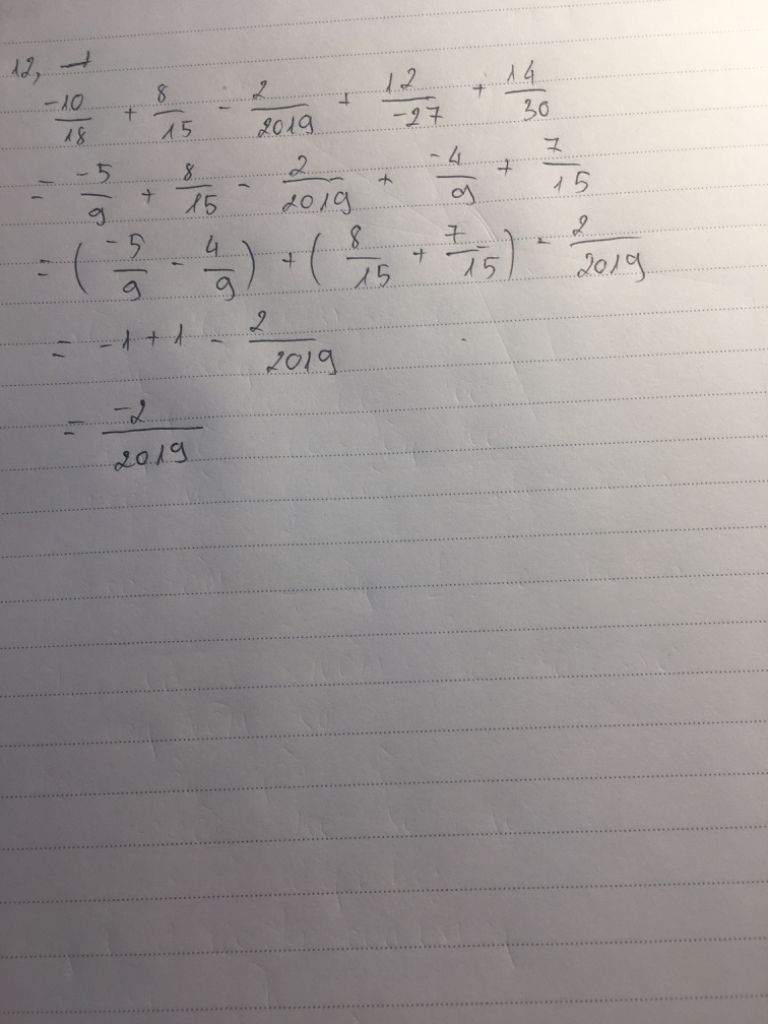 12,
-10/18 + 8/15 - 2/2019 + 12/-27 + 14/30
= -5/9 + 8/15 - 2/2019 + -4/9 + 7/15
= (-5/9 - 4/9) + (8/15 + 7/15) - 2/2019
= -1 + 1 - 2/2019
= -2/2019